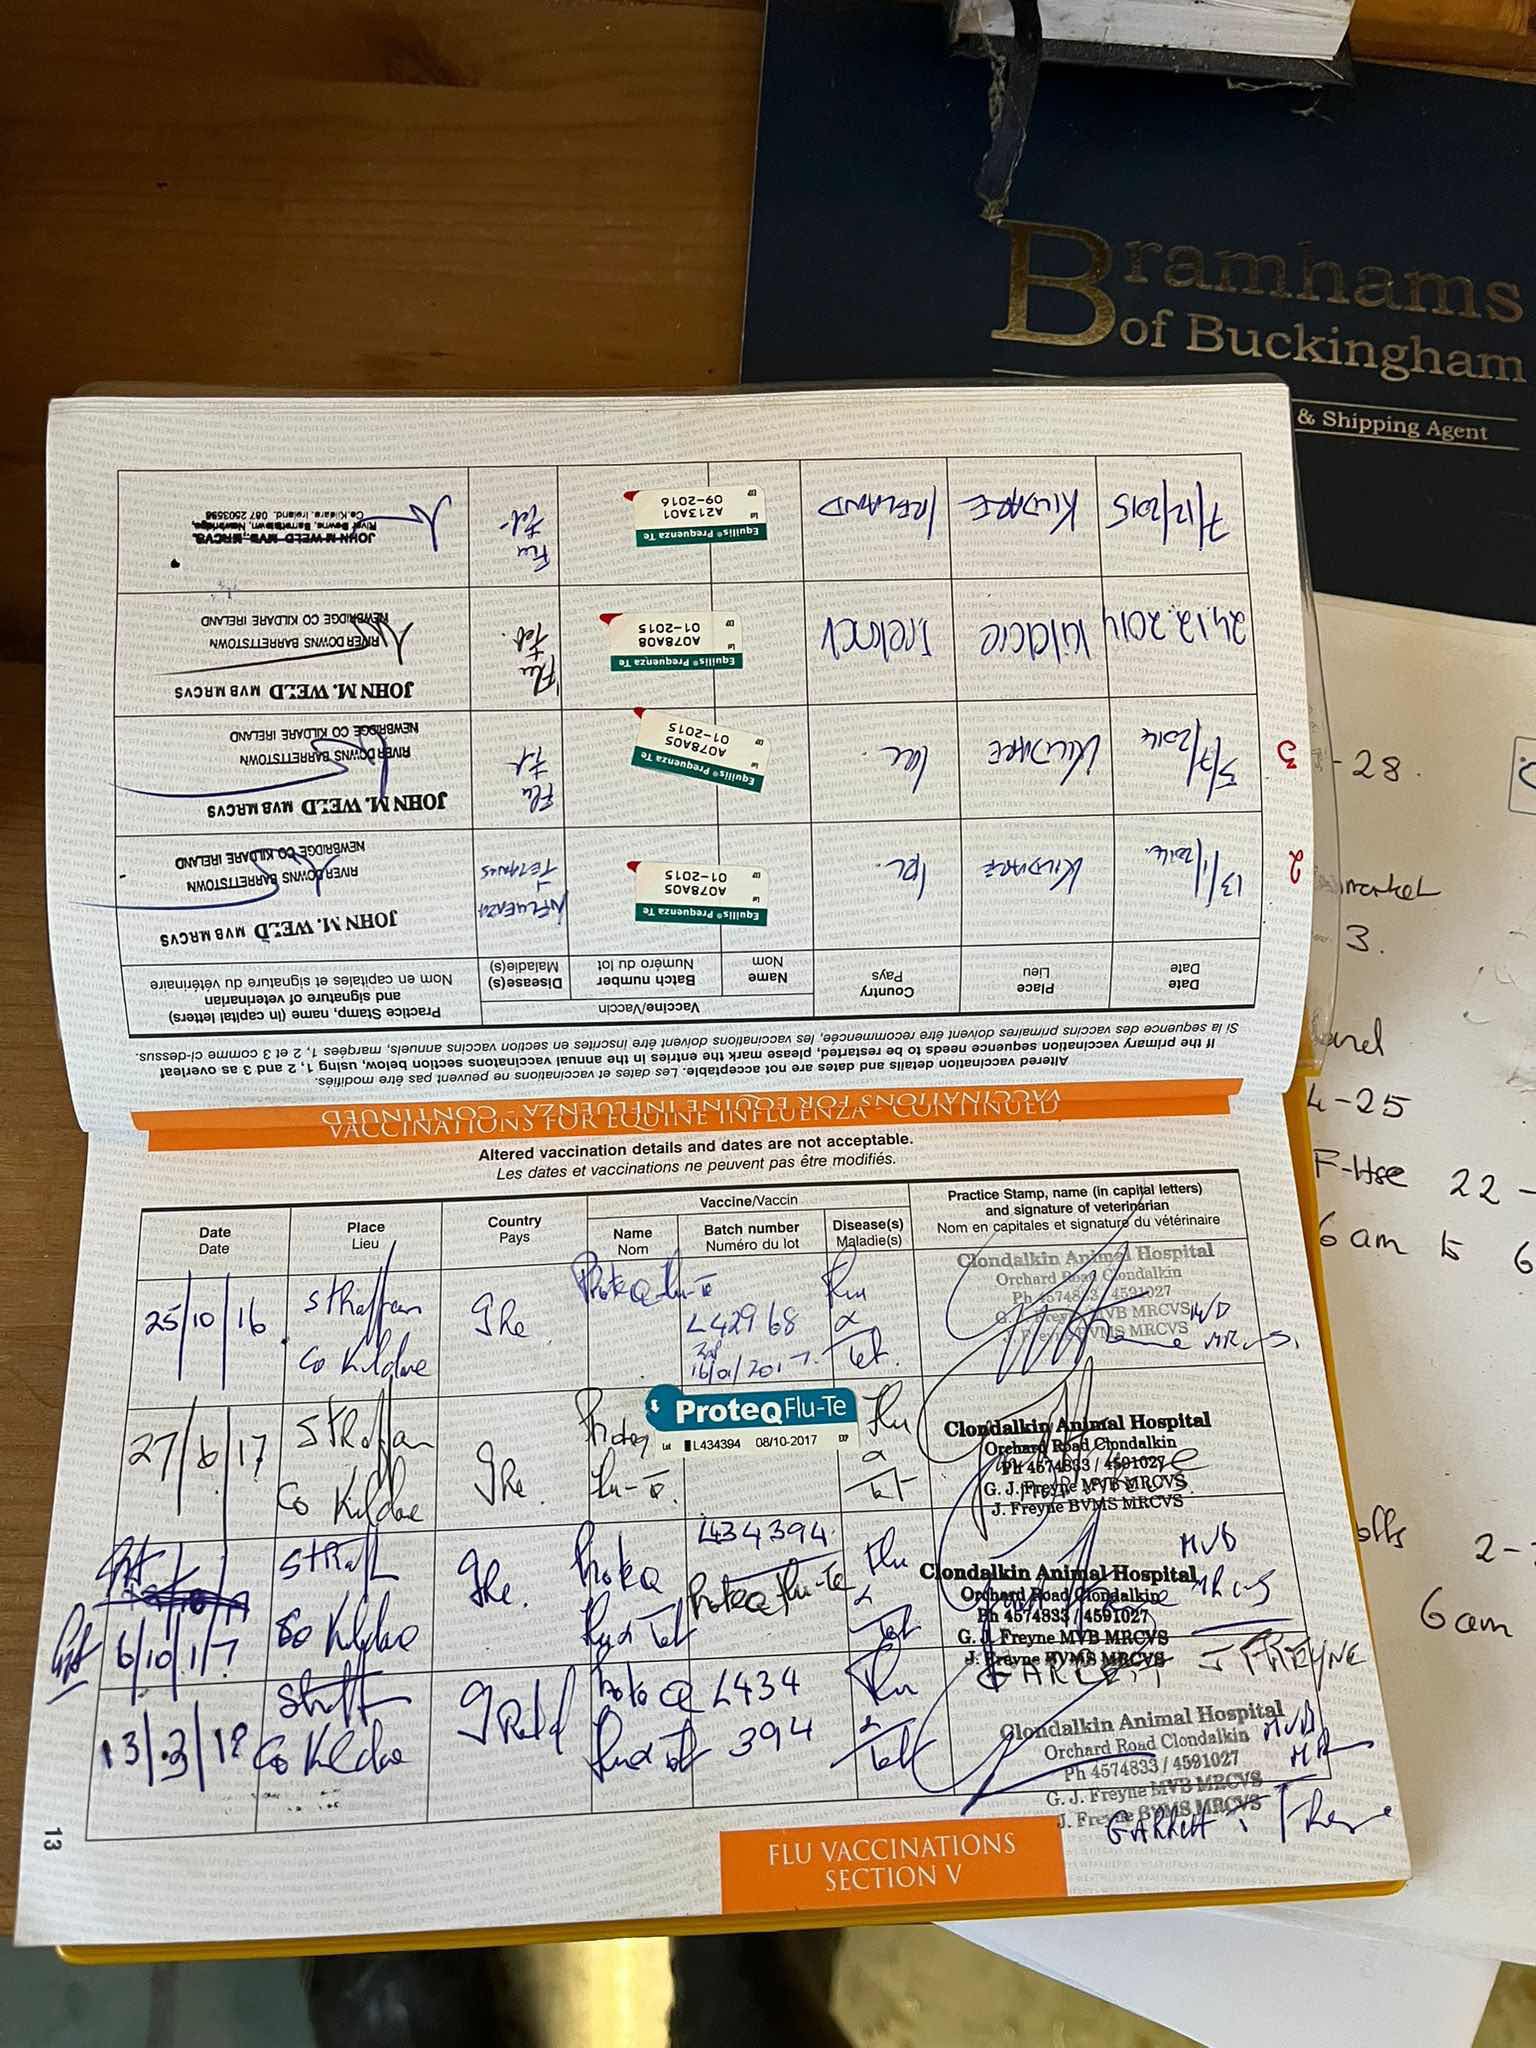 Bramhams
of Buckingham
& Shipping Agent
VACCINATIONS FOR EQUINE INFLUENZA - CONTINUED
Altered vaccination details and dates are not acceptable. Les dates et vaccinations ne peuvent pas être modifiés.
If the primary vaccination sequence needs to be restarted, please mark the entries in the annual vaccinations section below, using 1, 2 and 3 as overleaf
Si la séquence des vaccins primaires doivent être recommencée, les vaccinations doivent être inscrites en section vaccins annuels, marqées 1, 2 et 3 comme ci-dessus.
Date
Date
Place
Lieu
Country
Pays
Vaccine/Vaccin
Name
Nom
Batch number
Numéro du lot
Disease(s)
Maladie(s)
Practice Stamp, name (in capital letters)
and signature of veterinarian
Nom en capitales et signature du vétérinaire
2
13/1/2014.
KILDARE
IRE.
Equilis® Prequenza Te
Lot A078A05
EXP 01-2015
INFLUENZA
+ TETANUS
JOHN M. WELD MVB MRCVS
RIVER DOWNS BARRETTSTOWN
NEWBRIDGE CO KILDARE IRELAND
3
5/7/2014
KILDARE
IRE.
Equilis® Prequenza Te
Lot A078A05
EXP 01-2015
Flu
Tet
JOHN M. WELD MVB MRCVS
RIVER DOWNS BARRETTSTOWN
NEWBRIDGE CO KILDARE IRELAND
24.12.2014
Kildare
Ireland
Equilis® Prequenza Te
Lot A078A08
EXP 01-2015
Flu
Tet.
JOHN M. WELD MVB MRCVS
RIVER DOWNS BARRETTSTOWN
NEWBRIDGE CO KILDARE IRELAND
7/12/2015
KILDARE
IRELAND
Equilis® Prequenza Te
Lot A213A01
EXP 09-2016
Flu
Tet-
JOHN M WELD MVB, MRCVS,
River Downs, Barrettstown, Newbridge,
Co.Kildare, Ireland. 087 2503598
VACCINATIONS FOR EQUINE INFLUENZA - CONTINUED
Altered vaccination details and dates are not acceptable.
Les dates et vaccinations ne peuvent pas être modifiés.
Date
Date
Place
Lieu
Country
Pays
Vaccine/Vaccin
Name
Nom
Batch number
Numéro du lot
Disease(s)
Maladie(s)
Practice Stamp, name (in capital letters)
and signature of veterinarian
Nom en capitales et signature du vétérinaire
25/10/16
Straffan
Co Kildare
IRe.
ProteQ Flu-Te
L42968
16/01/2017.
Flu
&
Tet.
Clondalkin Animal Hospital
Orchard Road Clondalkin
Ph 4574833 / 4591027
G. J. Freyne MVB MRCVS
J. Freyne BVMS MRCVS
MRCVS.
27/6/17
Straffan
Co Kildare
IRe.
Proteq
Flu-Te.
ProteqFlu-Te
Lot L434394 08/10-2017 EXP
Flu
&
Tet
Clondalkin Animal Hospital
Orchard Road Clondalkin
Ph 4574833 / 4591027
G. J. Freyne MVB MRCVS
J. Freyne BVMS MRCVS
6/10/17
Co Kildare
IRe.
ProteQ
Flu & Tet
L434394
ProteQ Flu-Te
Flu
&
Tet
Clondalkin Animal Hospital
Orchard Road Clondalkin
Ph 4574833 / 4591027
G. J. Freyne MVB MRCVS
J. Freyne BVMS MRCVS
MVB
MRCVS
GARRETT J FREYNE
13/3/18
Co Kildare
IReld
ProteQ
Flu & Tet
L434
394
Flu
&
Tet
Clondalkin Animal Hospital
Orchard Road Clondalkin
Ph 4574833 / 4591027
G. J. Freyne MVB MRCVS
J. Freyne BVMS MRCVS
MVB
GARRett J Freyne
13
FLU VACCINATIONS
SECTION V
-28.
market
3.
4-25
F-Hse 22-
6am to 6
2-
6am